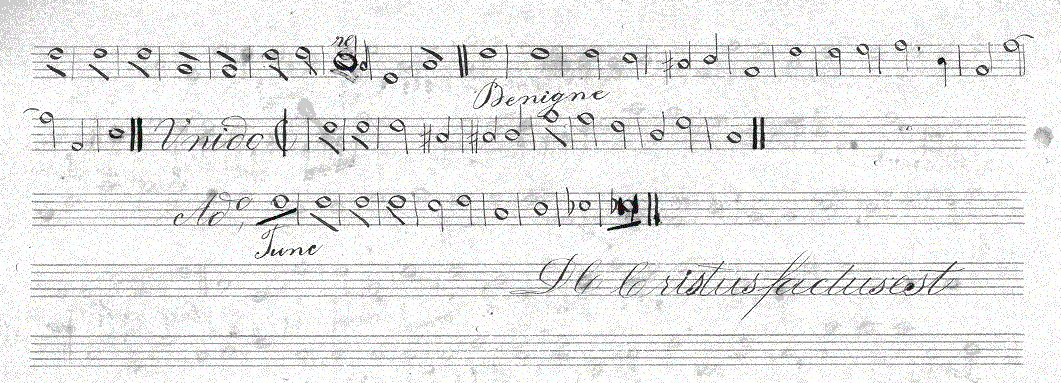 no
Benigne
Vnido
Ado,
Tunc
DC Cristus factus est